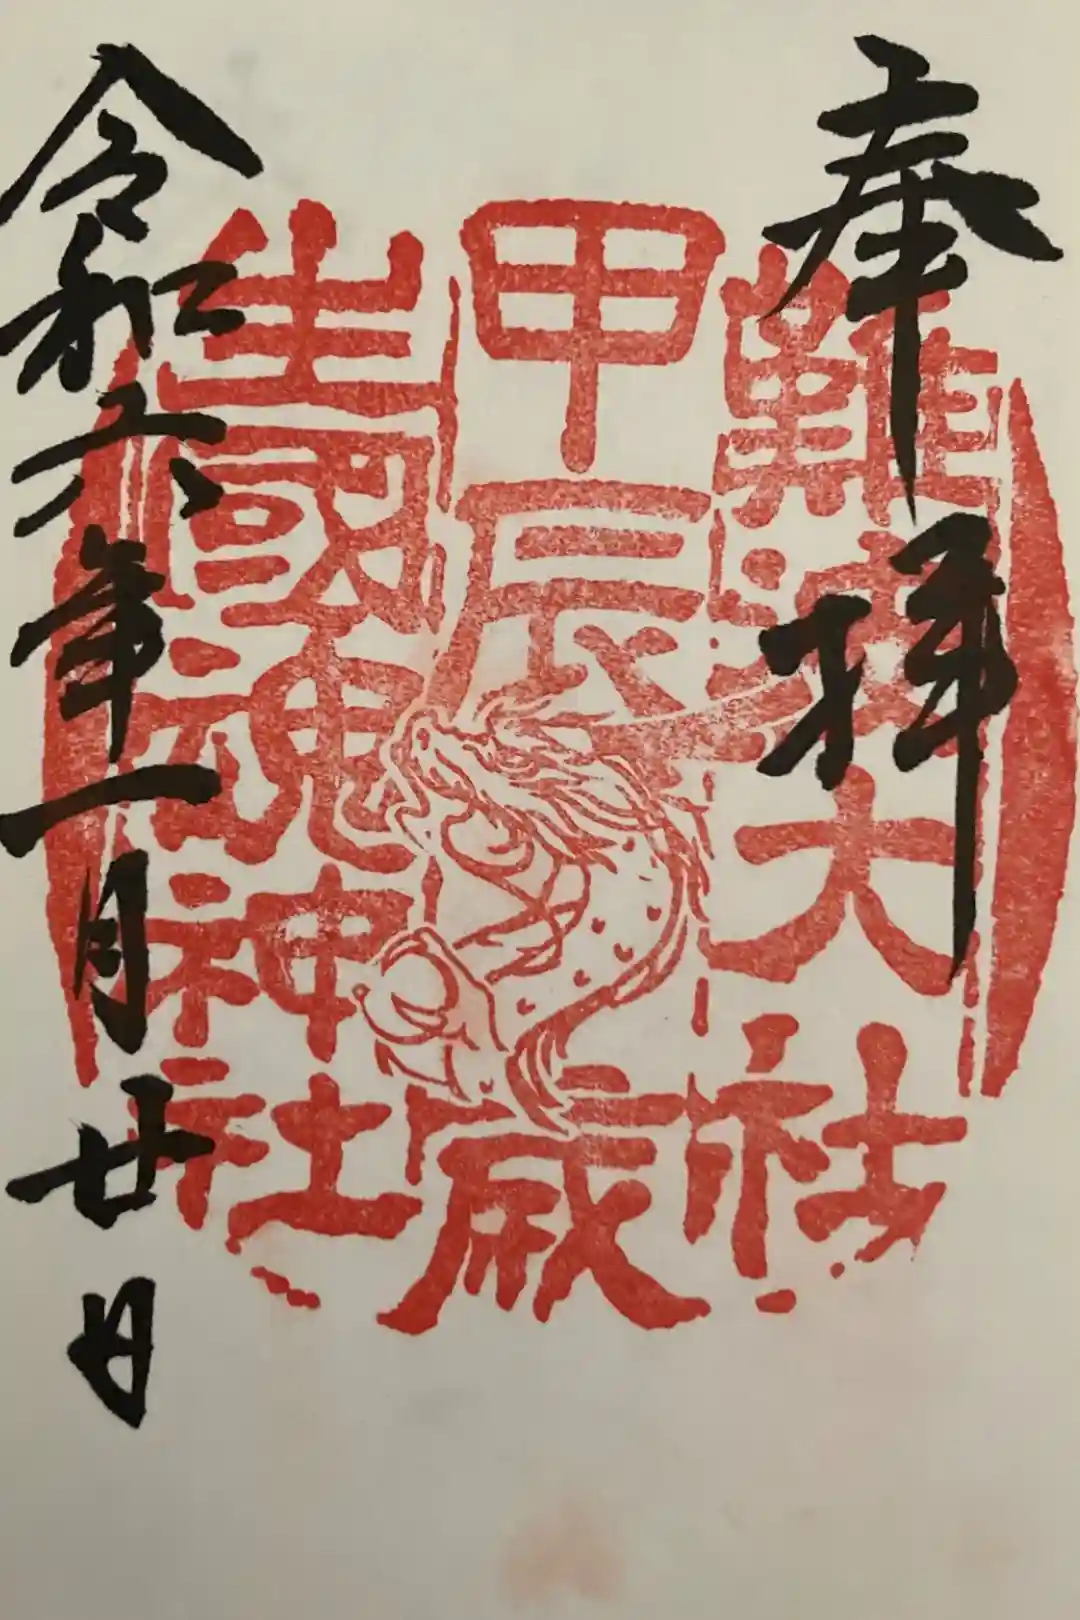 奉拝
難波大社
甲辰歳
生國魂神社
令和六年一月廿日